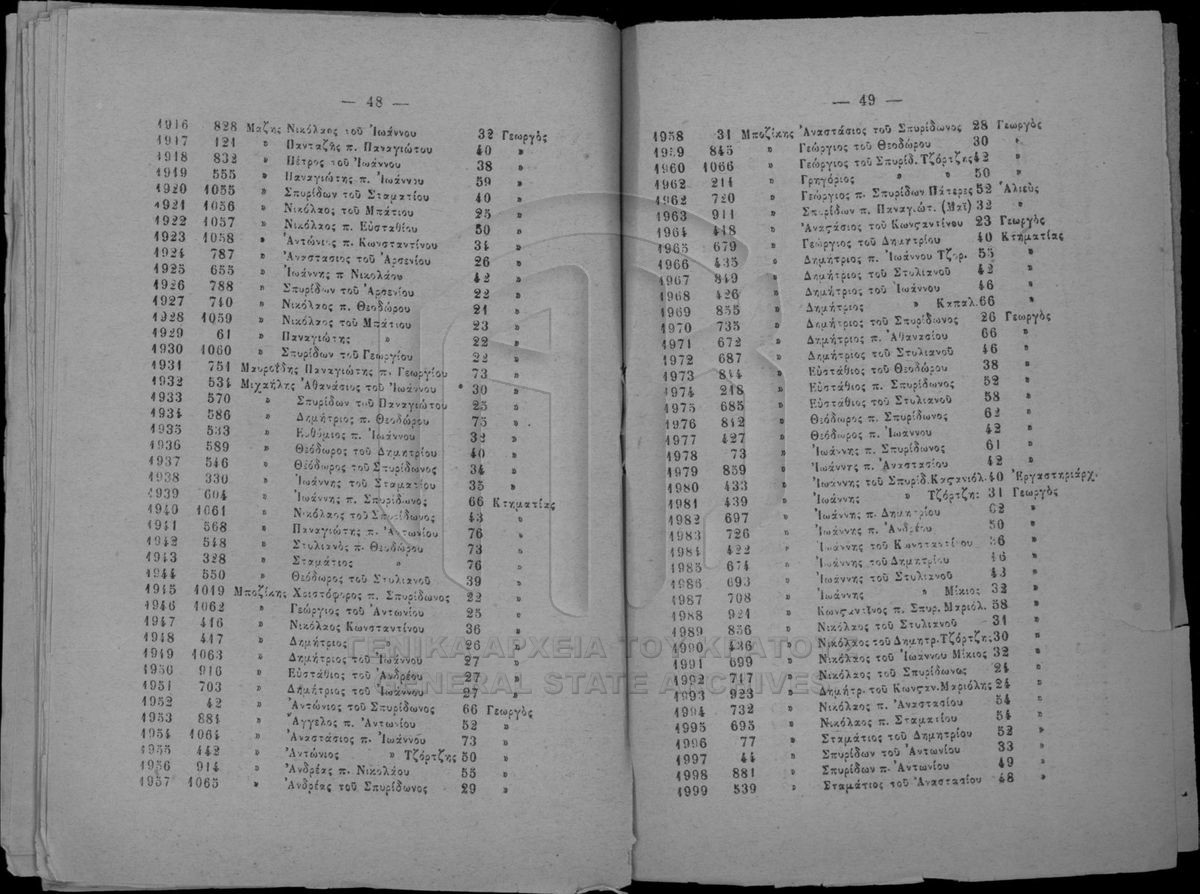 — 48 —
1916 828 Μαζης Νικόλαος τοῦ Ἰωάννου 32 Γεωργὸς
1917 121 » Πανταζῆς π. Παναγιώτου 40 »
1918 832 » Πέτρος τοῦ Ἰωάννου 38 »
1919 555 » Παναγιώτης π. Ἰωάννου 59 »
1920 1055 » Σπυρίδων τοῦ Σταματίου 40 »
1921 1056 » Νικόλαος τοῦ Μπάτιου 25 »
1922 1057 » Νικόλαος π. Εὐσταθίου 50 »
1923 1058 » Ἀντώνιος π. Κωνσταντίνου 34 »
1924 787 » Ἀναστασιος τοῦ Ἀρσενίου 26 »
1925 655 » Ἰωάννης π Νικολάου 42 »
1926 788 » Σπυρίδων τοῦ Ἀρσενίου 22 »
1927 740 » Νικόλαος π. Θεοδώρου 21 »
1928 1059 » Νικόλαος τοῦ Μπάτιου 23 »
1929 61 » Παναγιώτης » 22 »
1930 1060 » Σπυρίδων τοῦ Γεωργίου 22 »
1931 751 Μαυροΐδης Παναγιώτης π. Γεωργίου 73 »
1932 534 Μιχαήλης Ἀθανάσιος τοῦ Ἰωάννου 30 »
1933 570 » Σπυρίδων τοῦ Παναγιώτου 25 »
1934 586 » Δημήτριος π. Θεοδώρου 75 »
1935 533 » Εὐθύμιος π. Ἰωάννου 32 »
1936 589 » Θεόδωρος τοῦ Δημητρίου 40 »
1937 546 » Θεόδωρος τοῦ Σπυρίδωνος 34 »
1938 330 » Ἰωάννης τοῦ Σταματίου 35 »
1939 604 » Ἰωάννης π. Σπυρίδωνος 66 Κτηματίας
1940 1061 » Νικόλαος τοῦ Σπυρίδωνος 43 »
1941 568 » Παναγιώτης π. Ἀντωνίου 76 »
1942 548 » Στυλιανὸς π. Θεοδώρου 73 »
1943 328 » Σταμάτιος » 76 »
1944 550 » Θεόδωρος τοῦ Στυλιανοῦ 39 »
1945 1019 Μποζίκης Χριστόφορος π. Σπυρίδωνος 22 »
1946 1062 » Γεώργιος τοῦ Ἀντωνίου 25 »
1947 416 » Νικόλαος Κωνσταντίνου 36 »
1948 417 » Δημήτριος » 26 »
1949 1063 » Δημήτριος τοῦ Ἰωάννου 27 »
1950 916 » Εὐστάθιος τοῦ Ἀνδρέου 27 »
1951 703 » Δημήτριος τοῦ Ἰωάννου 27 »
1952 42 » Ἀντώνιος τοῦ Σπυρίδωνος 66 Γεωργὸς
1953 884 » Ἄγγελος π. Ἀντωνίου 52 »
1954 1064 » Ἀναστάσιος π. Ἰωάννου 73 »
1955 442 » Ἀντώνιος » Τζόρτζης 50 »
1956 914 » Ἀνδρέας π. Νικολάου 55 »
1957 1065 » Ἀνδρέας τοῦ Σπυρίδωνος 29 »
— 49 —
1958 31 Μποζίκης Ἀναστάσιος τοῦ Σπυρίδωνος 28 Γεωργὸς
1959 845 » Γεώργιος τοῦ Θεοδώρου 30 »
1960 1066 » Γεώργιος τοῦ Σπυρίδ. Τζόρτζης 42 »
1962 214 » Γρηγόριος » » 50 »
1962 720 » Γεώργιος π. Σπυρίδων Πάτερες 52 Ἁλιεὺς
1963 911 » Σπυρίδων π. Παναγιώτ. (Μαϊ) 32 »
1964 418 » Ἀναςάσιος τοῦ Κωνςαντίνου 23 Γεωργὸς
1965 679 » Γεώργιος τοῦ Δημητρίου 40 Κτηματίας
1966 435 » Δημήτριος π. Ἰωάννου Τζορ. 55 »
1967 849 » Δημήτριος τοῦ Στυλιανοῦ 42 »
1968 426 » Δημήτριος τοῦ Ἰωάννου 46 »
1969 855 » Δημήτριος » Καπαλ. 66 »
1970 735 » Δημήτριος τοῦ Σπυρίδωνος 26 Γεωργὸς
1971 672 » Δημήτριος π. Ἀθανασίου 66 »
1972 687 » Δημήτριος τοῦ Στυλιανοῦ 46 »
1973 844 » Εὐστάθιος τοῦ Θεοδώρου 38 »
1974 218 » Εὐστάθιος π. Σπυρίδωνος 52 »
1975 685 » Εὐστάθιος τοῦ Στυλιανοῦ 58 »
1976 842 » Θεόδωρος π. Σπυρίδωνος 62 »
1977 427 » Θεόδωρος π. Ἰωάννου 42 »
1978 73 » Ἰωάννης π. Σπυρίδωνος 61 »
1979 859 » Ἰωάννης π. Ἀναστασίου 42 »
1980 433 » Ἰωάννης τοῦ Σπυρίδ. Καςανιόλ. 40 Ἐργαστηριάρχ.
1981 439 » Ἰωάννης » Τζόρτζης 31 Γεωργὸς
1982 697 » Ἰωάννης π. Δημητρίου 62 »
1983 726 » Ἰωάννης π. Ἀνδρέου 50 »
1984 422 » Ἰωάννης τοῦ Κωνσταντίνου 36 »
1985 674 » Ἰωάννης τοῦ Δημητρίου 46 »
1986 693 » Ἰωάννης τοῦ Στυλιανοῦ 43 »
1987 708 » Ἰωάννης » Μίκιος 32 »
1988 924 » Κωνςαντῖνος π. Σπυρ. Μαριόλ. 58 »
1989 856 » Νικόλαος τοῦ Στυλιανοῦ 31 »
1990 436 » Νικόλαος τοῦ Δημητρ. Τζόρτζης 30 »
1991 699 » Νικόλαος τοῦ Ἰωάννου Μίκιος 32 »
1992 717 » Νικόλαος τοῦ Σπυρίδωνος 24 »
1993 923 » Δημήτρ. τοῦ Κωνςαν. Μαριόλης 24 »
1994 732 » Νικόλαος π. Ἀναστασίου 54 »
1995 695 » Νικόλαος π. Σταματίου 54 »
1996 77 » Σταμάτιος τοῦ Δημητρίου 52 »
1997 44 » Σπυρίδων τοῦ Ἀντωνίου 33 »
1998 881 » Σπυρίδων π. Ἀντωνίου 49 »
1999 539 » Σταμάτιος τοῦ Ἀναστασίου 48 »
ΓΕΝΙΚΑ ΑΡΧΕΙΑ ΤΟΥ ΚΡΑΤΟΥΣ
GENERAL STATE ARCHIVES